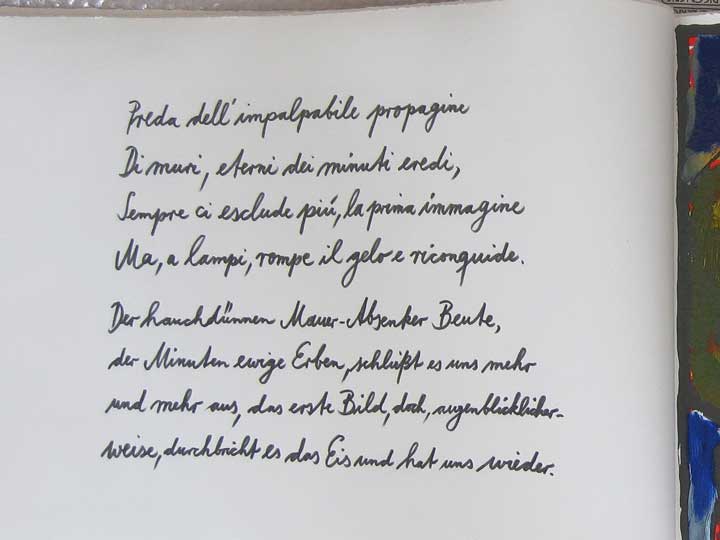 Preda dell'impalpabile propagine
Di muri, eterni dei minuti eredi,
Sempre ci esclude piú, la prima immagine
Ma, a lampi, rompe il gelo e riconquide.
Der hauchdünnen Mauer-Absenker Beute,
der Minuten ewige Erben, schlüßt es uns mehr
und mehr aus, das erste Bild, doch, augenblicklicher-
weise, durchbricht es das Eis und hat uns wieder.